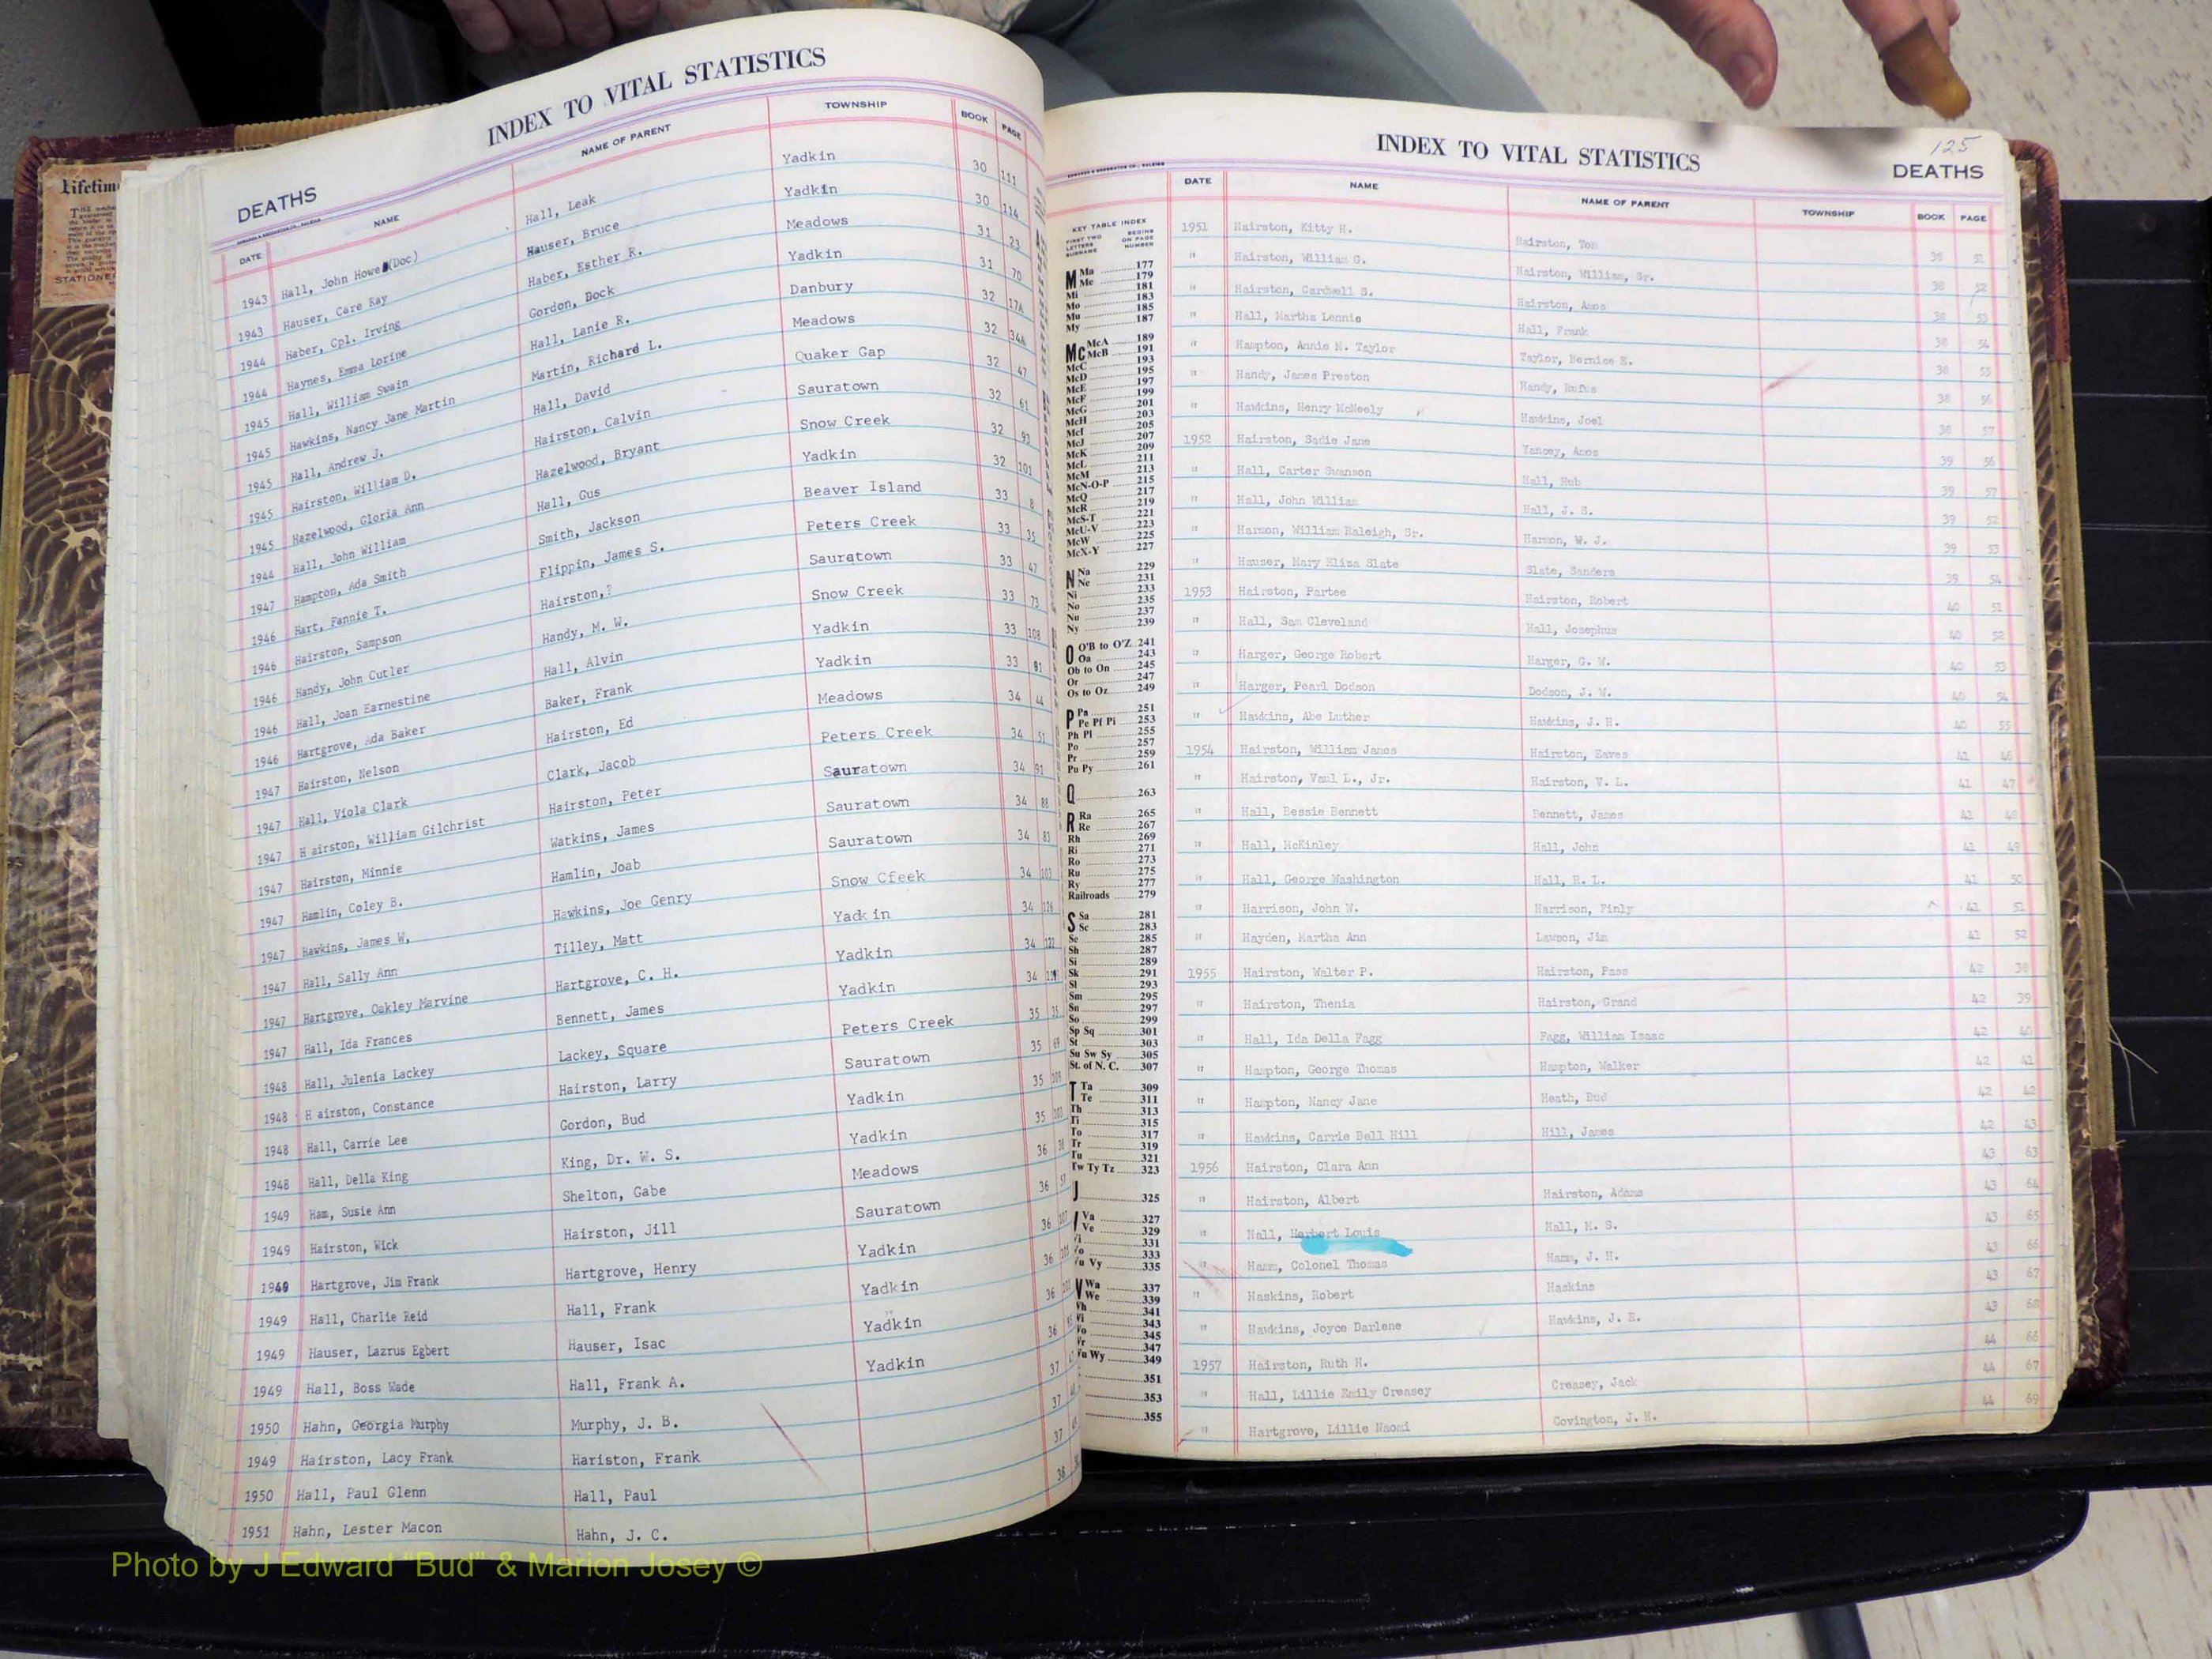 INDEX TO VITAL STATISTICS
DEATHS
DATE NAME NAME OF PARENT TOWNSHIP BOOK PAGE
1943 Hall, John Howe (Doc) Hall, Leak Yadkin 30 111
1943 Hauser, Care Ray Hauser, Bruce Yadkin 30 114
1944 Haber, Cpl. Irving Haber, Esther R. Meadows 31 23
1944 Haynes, Emma Lorine Gordon, Dock Yadkin 31 70
1945 Hall, William Swain Hall, Lanie R. Danbury 32 17A
1945 Hawkins, Nancy Jane Martin Martin, Richard L. Meadows 32 34A
1945 Hall, Andrew J. Hall, David Quaker Gap 32 47
1945 Hairston, William D. Hairston, Calvin Sauratown 32 61
1945 Hazelwood, Gloria Ann Hazelwood, Bryant Snow Creek 32 93
1944 Hall, John William Hall, Gus Yadkin 32 101
1947 Hampton, Ada Smith Smith, Jackson Beaver Island 33 8
1946 Hart, Fannie T. Flippin, James S. Peters Creek 33 35
1946 Hairston, Sampson Hairston,? Sauratown 33 47
1946 Handy, John Cutler Handy, M. W. Snow Creek 33 73
1946 Hall, Joan Earnestine Hall, Alvin Yadkin 33 108
1946 Hartgrove, Ada Baker Baker, Frank Yadkin 33 81
1947 Hairston, Nelson Hairston, Ed Meadows 34 44
1947 Hall, Viola Clark Clark, Jacob Peters Creek 34 51
1947 H airston, William Gilchrist Hairston, Peter Sauratown 34 91
1947 Hairston, Minnie Watkins, James Sauratown 34 88
1947 Hamlin, Coley B. Hamlin, Joab Sauratown 34 83
1947 Hawkins, James W, Hawkins, Joe Genry Snow Cfeek 34
1947 Hall, Sally Ann Tilley, Matt Yadkin 34 126
1947 Hartgrove, Oakley Marvine Hartgrove, C. H. Yadkin 34
1947 Hall, Ida Frances Bennett, James Yadkin 34
1948 Hall, Julenia Lackey Lackey, Square Peters Creek 35
1948 H airston, Constance Hairston, Larry Sauratown 35
1948 Hall, Carrie Lee Gordon, Bud Yadkin 35
1948 Hall, Della King King, Dr. W. S. Yadkin 35
1949 Ham, Susie Ann Shelton, Gabe Meadows 36
1949 Hairston, Wick Hairston, Jill Sauratown 36
1949 Hartgrove, Jim Frank Hartgrove, Henry Yadkin 36
1949 Hall, Charlie Reid Hall, Frank Yadkin 36
1949 Hauser, Lazrus Egbert Hauser, Isac Yadkin 36
1949 Hall, Boss Wade Hall, Frank A. Yadkin 36
1950 Hahn, Georgia Murphy Murphy, J. B. 37
1949 Hairston, Lacy Frank Hariston, Frank 37
1950 Hall, Paul Glenn Hall, Paul 37
1951 Hahn, Lester Macon Hahn, J. C. 38
Lifetim
STATIONE
KEY TABLE INDEX
FIRST TWO LETTERS SURNAME BEGINS ON PAGE NUMBER
M Ma 177
Me 179
Mi 181
Mo 183
Mu 185
My 187
Mc McA 189
McB 191
McC 193
McD 195
McE 197
McF 199
McG 201
McH 203
McI 205
McJ 207
McK 209
McL 211
McM 213
McN-O-P 215
McQ 217
McR 219
McS-T 221
McU-V 223
McW 225
McX-Y 227
N Na 229
Ne 231
Ni 233
No 235
Nu 237
Ny 239
O O'B to O'Z 241
Oa 243
Ob to On 245
Or 247
Os to Oz 249
P Pa 251
Pe Pf Pi 253
Ph Pl 255
Po 257
Pr 259
Pu Py 261
Q 263
R Ra 265
Re 267
Rh 269
Ri 271
Ro 273
Ru 275
Ry 277
Railroads 279
S Sa 281
Sc 283
Se 285
Sh 287
Si 289
Sk 291
Sl 293
Sm 295
Sn 297
So 299
Sp Sq 301
St 303
Su Sw Sy 305
St. of N. C. 307
T Ta 309
Te 311
Th 313
Ti 315
To 317
Tr 319
Tu 321
Tw Ty Tz 323
325
Va 327
Ve 329
331
333
335
Wa 337
We 339
341
343
345
347
349
351
353
355
125
INDEX TO VITAL STATISTICS
DEATHS
DATE NAME NAME OF PARENT TOWNSHIP BOOK PAGE
1951 Hairston, Kitty H. Hairston, Tom 38 51
" Hairston, William G. Hairston, William, Sr. 38 52
" Hairston, Cardwell S. Hairston, Amos 38 53
" Hall, Martha Lennis Hall, Frank 38 54
" Hampton, Annie M. Taylor Taylor, Bernice E. 38 55
" Handy, James Preston Handy, Rufus 38 56
" Hawkins, Henry McNeely Hawkins, Joel 38 57
1952 Hairston, Sadie Jane Yancey, Amos 39 56
" Hall, Carter Swanson Hall, Hub 39 57
" Hall, John William Hall, J. S. 39 52
" Harmon, William Raleigh, Sr. Harmon, W. J. 39 53
" Hauser, Mary Eliza Slate Slate, Sanders 39 54
1953 Hairston, Partee Hairston, Robert 40 51
" Hall, Sam Cleveland Hall, Josephus 40 52
" Harger, George Robert Harger, G. W. 40 53
" Harger, Pearl Dodson Dodson, J. W. 40 54
" Hawkins, Abe Luther Hawkins, J. H. 40 55
1954 Hairston, William James Hairston, Eaves 41 46
" Hairston, Vaul L., Jr. Hairston, V. L. 41 47
" Hall, Bessie Bennett Bennett, James 41 48
" Hall, McKinley Hall, John 41 49
" Hall, George Washington Hall, R. L. 41 50
" Harrison, John W. Harrison, Finly 41 51
" Hayden, Martha Ann Lawson, Jim 41 52
1955 Hairston, Walter P. Hairston, Pass 42 38
" Hairston, Thenia Hairston, Grand 42 39
" Hall, Ida Della Fagg Fagg, William Isaac 42 40
" Hampton, George Thomas Hampton, Walker 42 41
" Hampton, Nancy Jane Heath, Bud 42 42
" Hawkins, Carrie Bell Hill Hill, James 42 43
1956 Hairston, Clara Ann 43 63
" Hairston, Albert Hairston, Adams 43 64
" Hall, Herbert Louis Hall, M. S. 43 65
" Hamm, Colonel Thomas Hamm, J. H. 43 66
" Haskins, Robert Haskins 43 67
" Hawkins, Joyce Darlene Hawkins, J. E. 43 68
1957 Hairston, Ruth H. 44 66
" Hall, Lillie Emily Creasey Creasey, Jack 44 67
" Hartgrove, Lillie Naomi Covington, J. H. 44 69
Photo by J Edward "Bud" & Marion Josey ©